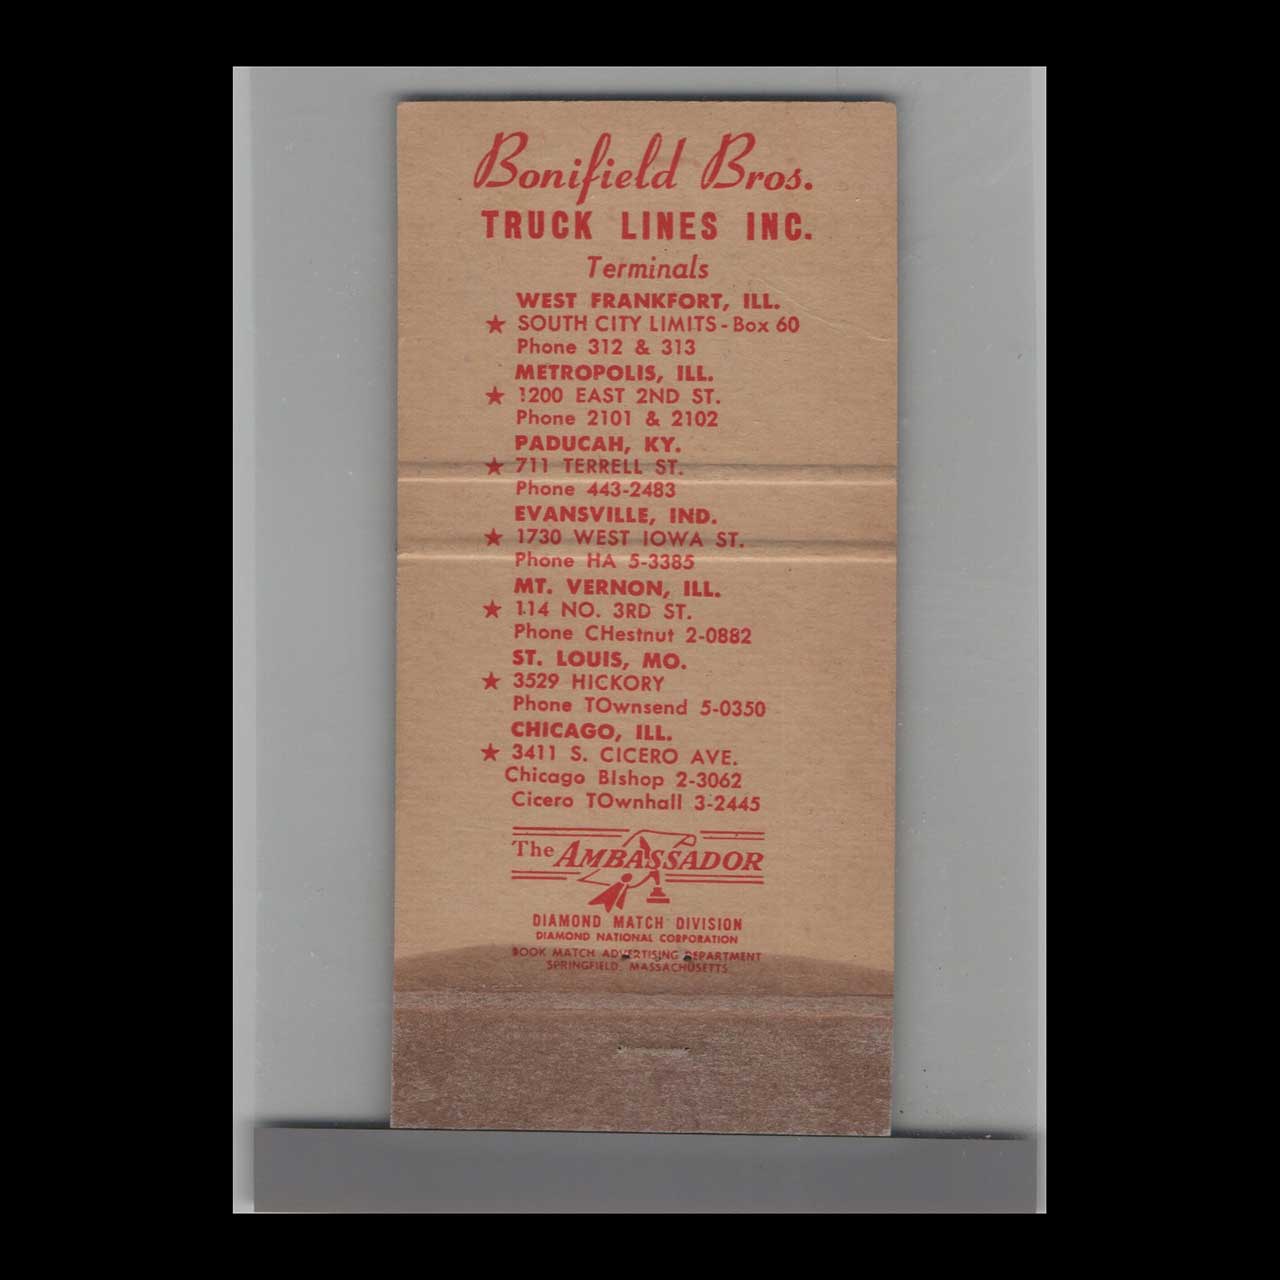 Bonifield Bros.
TRUCK LINES INC.
Terminals
WEST FRANKFORT, ILL.
★ SOUTH CITY LIMITS - Box 60
Phone 312 & 313
METROPOLIS, ILL.
★ 1200 EAST 2ND ST.
Phone 2101 & 2102
PADUCAH, KY.
★ 711 TERRELL ST.
Phone 443-2483
EVANSVILLE, IND.
★ 1730 WEST IOWA ST.
Phone HA 5-3385
MT. VERNON, ILL.
★ 114 NO. 3RD ST.
Phone CHestnut 2-0882
ST. LOUIS, MO.
★ 3529 HICKORY
Phone TOwnsend 5-0350
CHICAGO, ILL.
★ 3411 S. CICERO AVE.
Chicago BIshop 2-3062
Cicero TOwnhall 3-2445
The AMBASSADOR
DIAMOND MATCH DIVISION
DIAMOND NATIONAL CORPORATION
BOOK MATCH ADVERTISING DEPARTMENT
SPRINGFIELD, MASSACHUSETTS